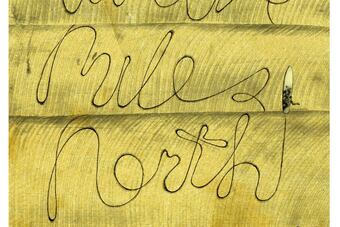 Rules
North